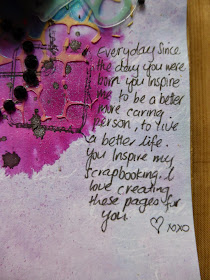 Everyday since
the day you were
born you inspire
me to be a better
more caring
person, to live
a better life.
You inspire my
scrapbooking. I
love creating
these pages for
you
♡ xoxo